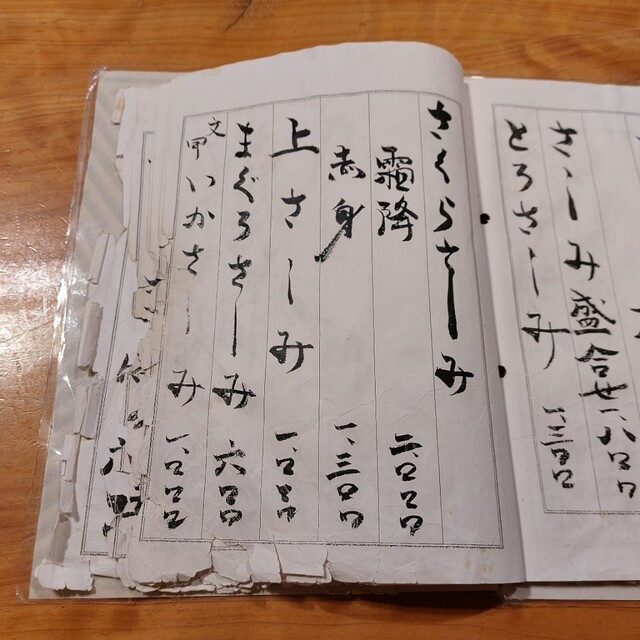 さしみ盛合せ 一、八〇〇
とろさしみ 一、三〇〇
さくらさしみ
霜降 二、〇〇〇
赤身 一、三〇〇
上さしみ 一、〇〇〇
まぐろさしみ 六〇〇
文甲いかさしみ 一、〇〇〇